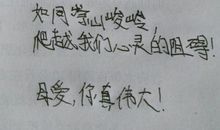 如同崇山峻岭,
爬越我们心灵的阻碍!
母爱,你真伟大!